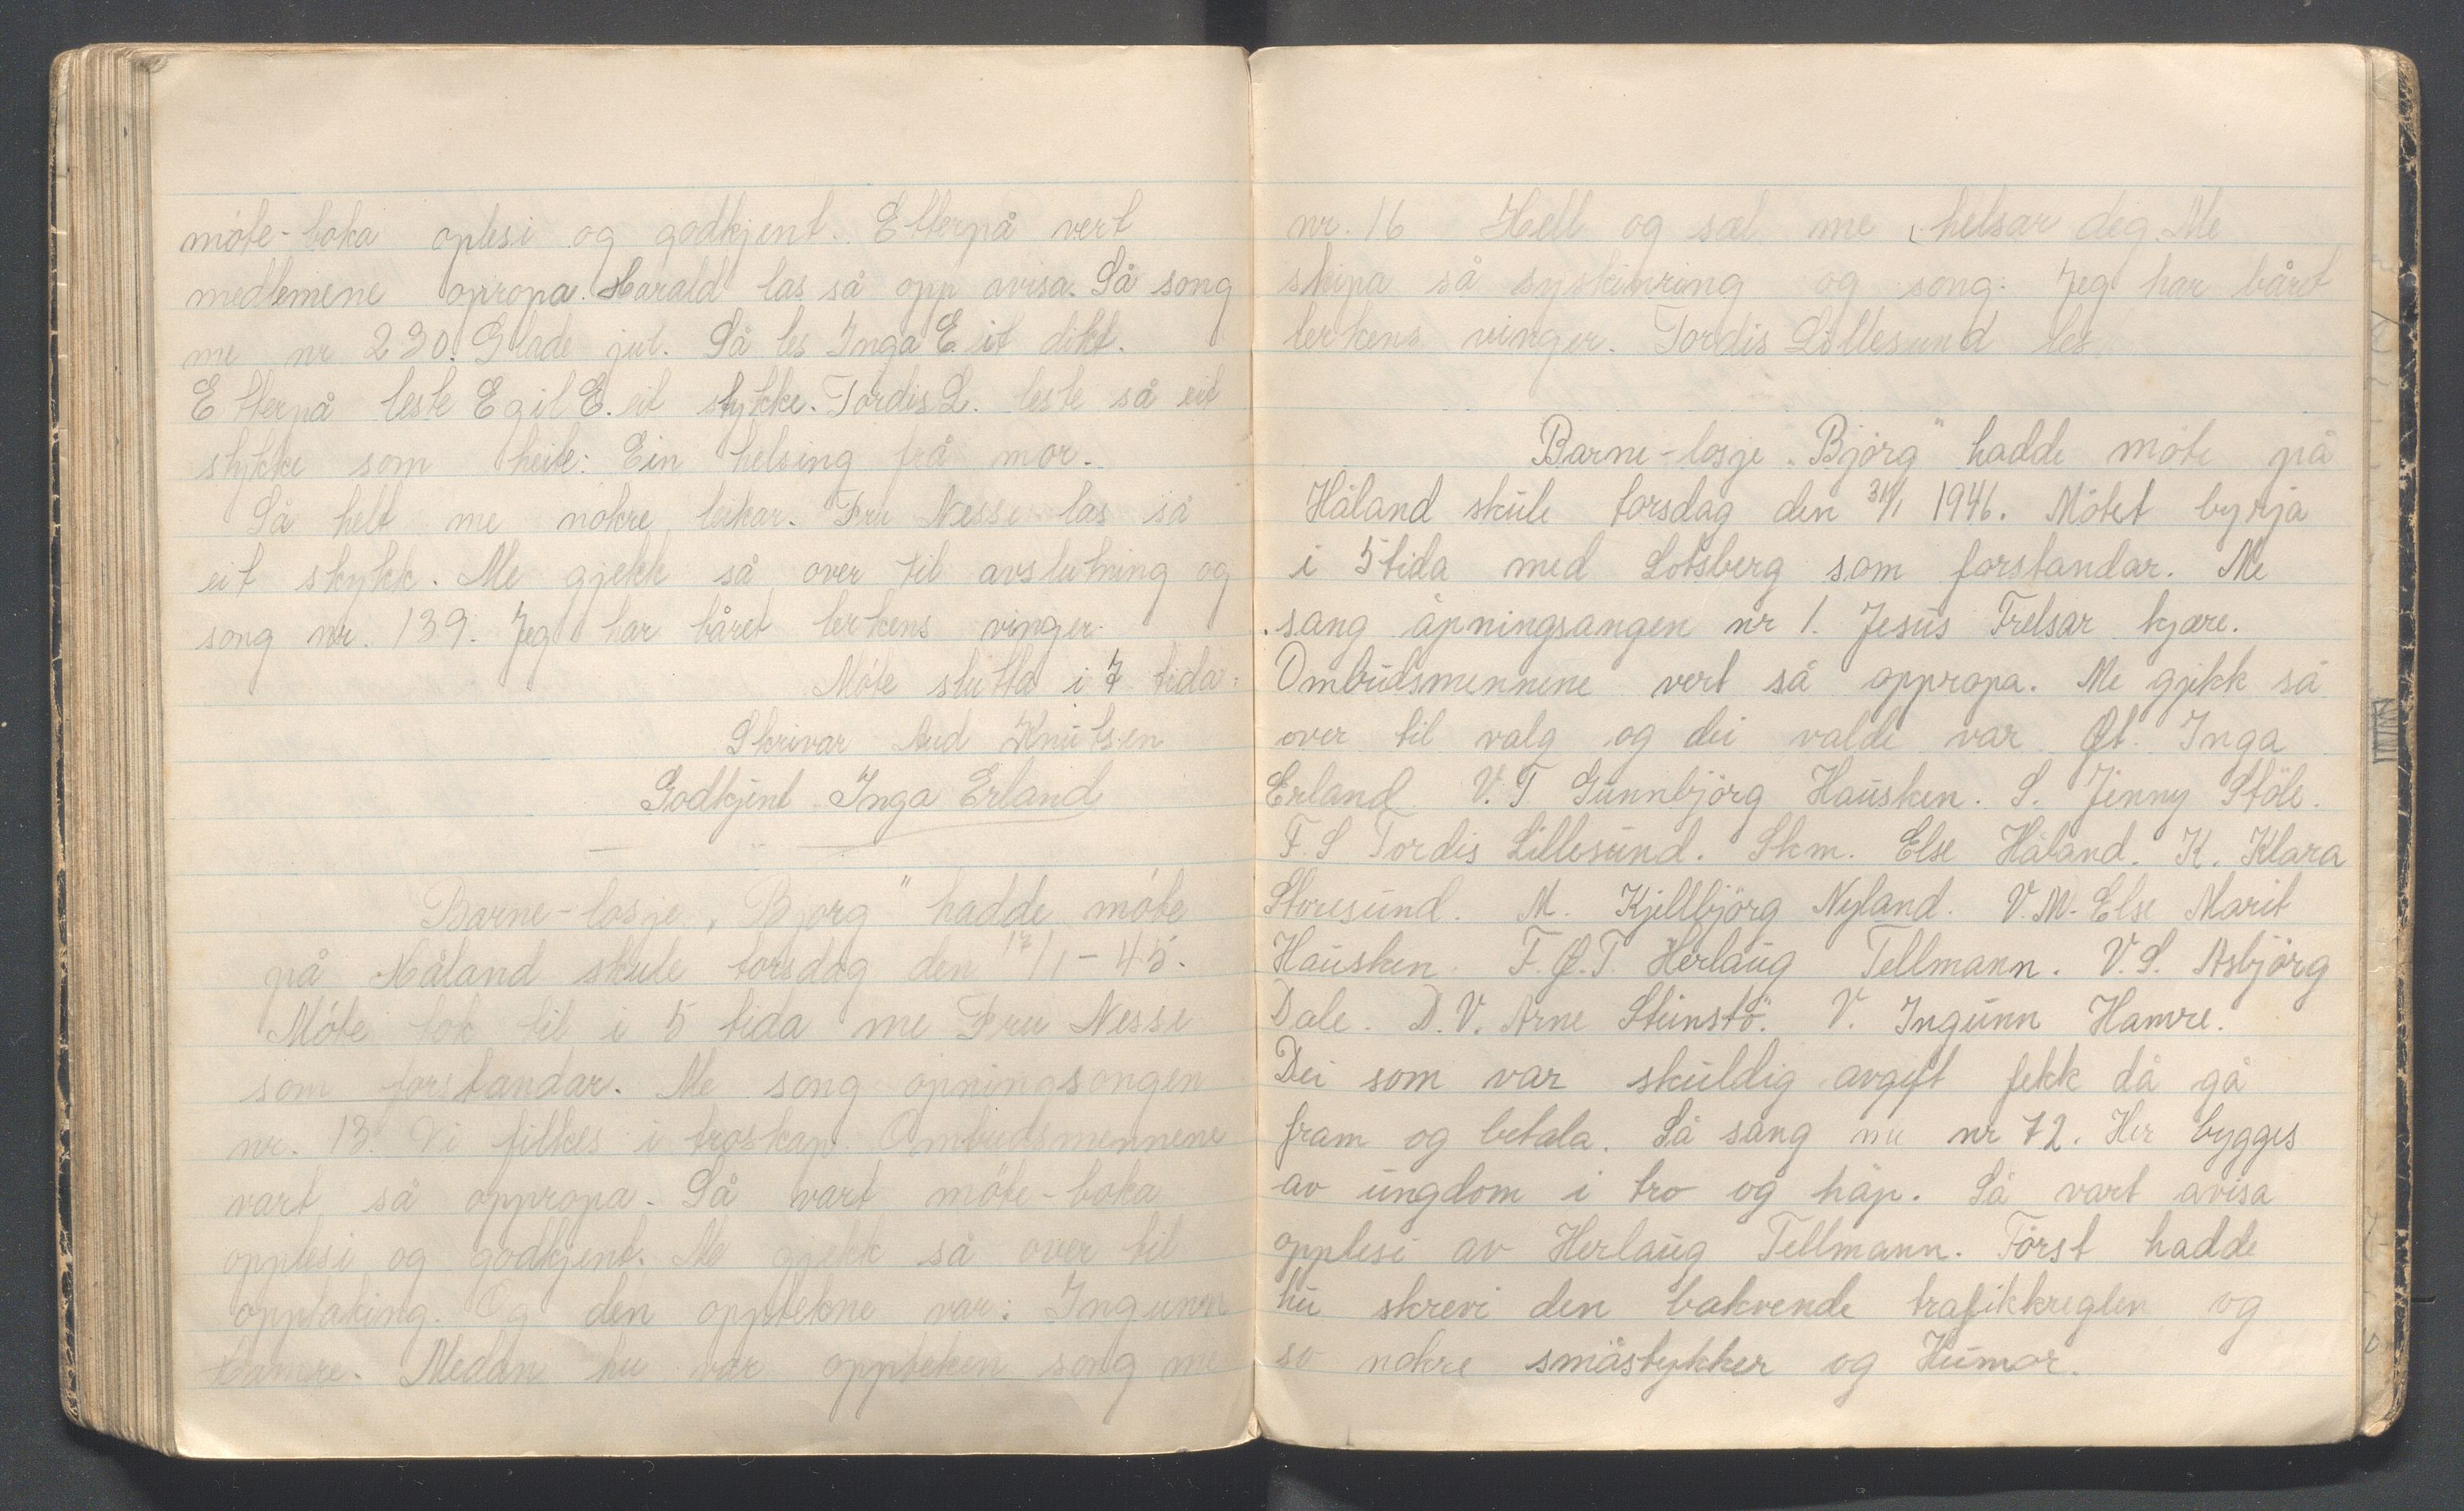 möte-boka oplesi og godkjent. Etterpå vert
medlemene opropa. Harald las så opp avisa. Så song
me nr 230. Glade jul. Så les Inga E. eit dikt.
Etterpå leste Egil E. eit stykke. Tordis L. leste så eit
stykke som heite: Ein helsing frå mor.
Så helt me nokre leikar. Fru Nesse las så
eit stykk. Me gjekk så over til avslutning og
song nr. 139. Jeg har båret lerkens vinger.
Möte slutta i 7 tida.
Skrivar Aud Knutsen
Godkjent Inga Erland
Barne-losje „Bjørg" hadde möte
på Håland skule torsdag den 17/1-45.
Möte tok til i 5 tida me Fru Nesse
som forstandar. Me song opningsongen
nr. 13. Vi filkes i troskap. Ombudsmennene
vart så oppropa. Så vart möte-boka
opplesi og godkjent. Me gjekk så over til
opptaking. Og den opptekne var: Ingunn
Hamre. Medan hu var oppteken song me
nr. 16 Hell og sæl me helsar deg. Me
skipa så syskinring og song: Jeg har båret
lerkens vinger. Tordis Lillesund les
Barne-losje „Björg" hadde möte på
Håland skule torsdag den 31/1 1946. Mötet byrja
i 5 tida med Lotsberg som forstandar. Me
sang åpningsangen nr 1. Jesus Frelsar kjære.
Ombudsmennene vert så oppropa. Me gjekk så
over til valg og dei valde var Øt. Inga
Erland V.T Gunnbjörg Hausken. S. Jenny Stöle.
F.S Tordis Lillesund. Skm. Else Håland. K. Klara
Storesund. M. Kjellbjörg Nyland. V.M. Else Marit
Hausken. F.Ø.T. Herlaug Tellmann. V.S. Asbjörg
Dale. D.V. Arne Steinstö. V. Ingunn Hamre.
Dei som var skuldig avgift fekk då gå
fram og betala. Så sang me nr 72. Her bygges
av ungdom i tro og håp. Så vart avisa
opplesi av Herlaug Tellmann. Först hadde
hu skrevi den bakvende trafikkreglen og
so nokre småstykker og Humor.